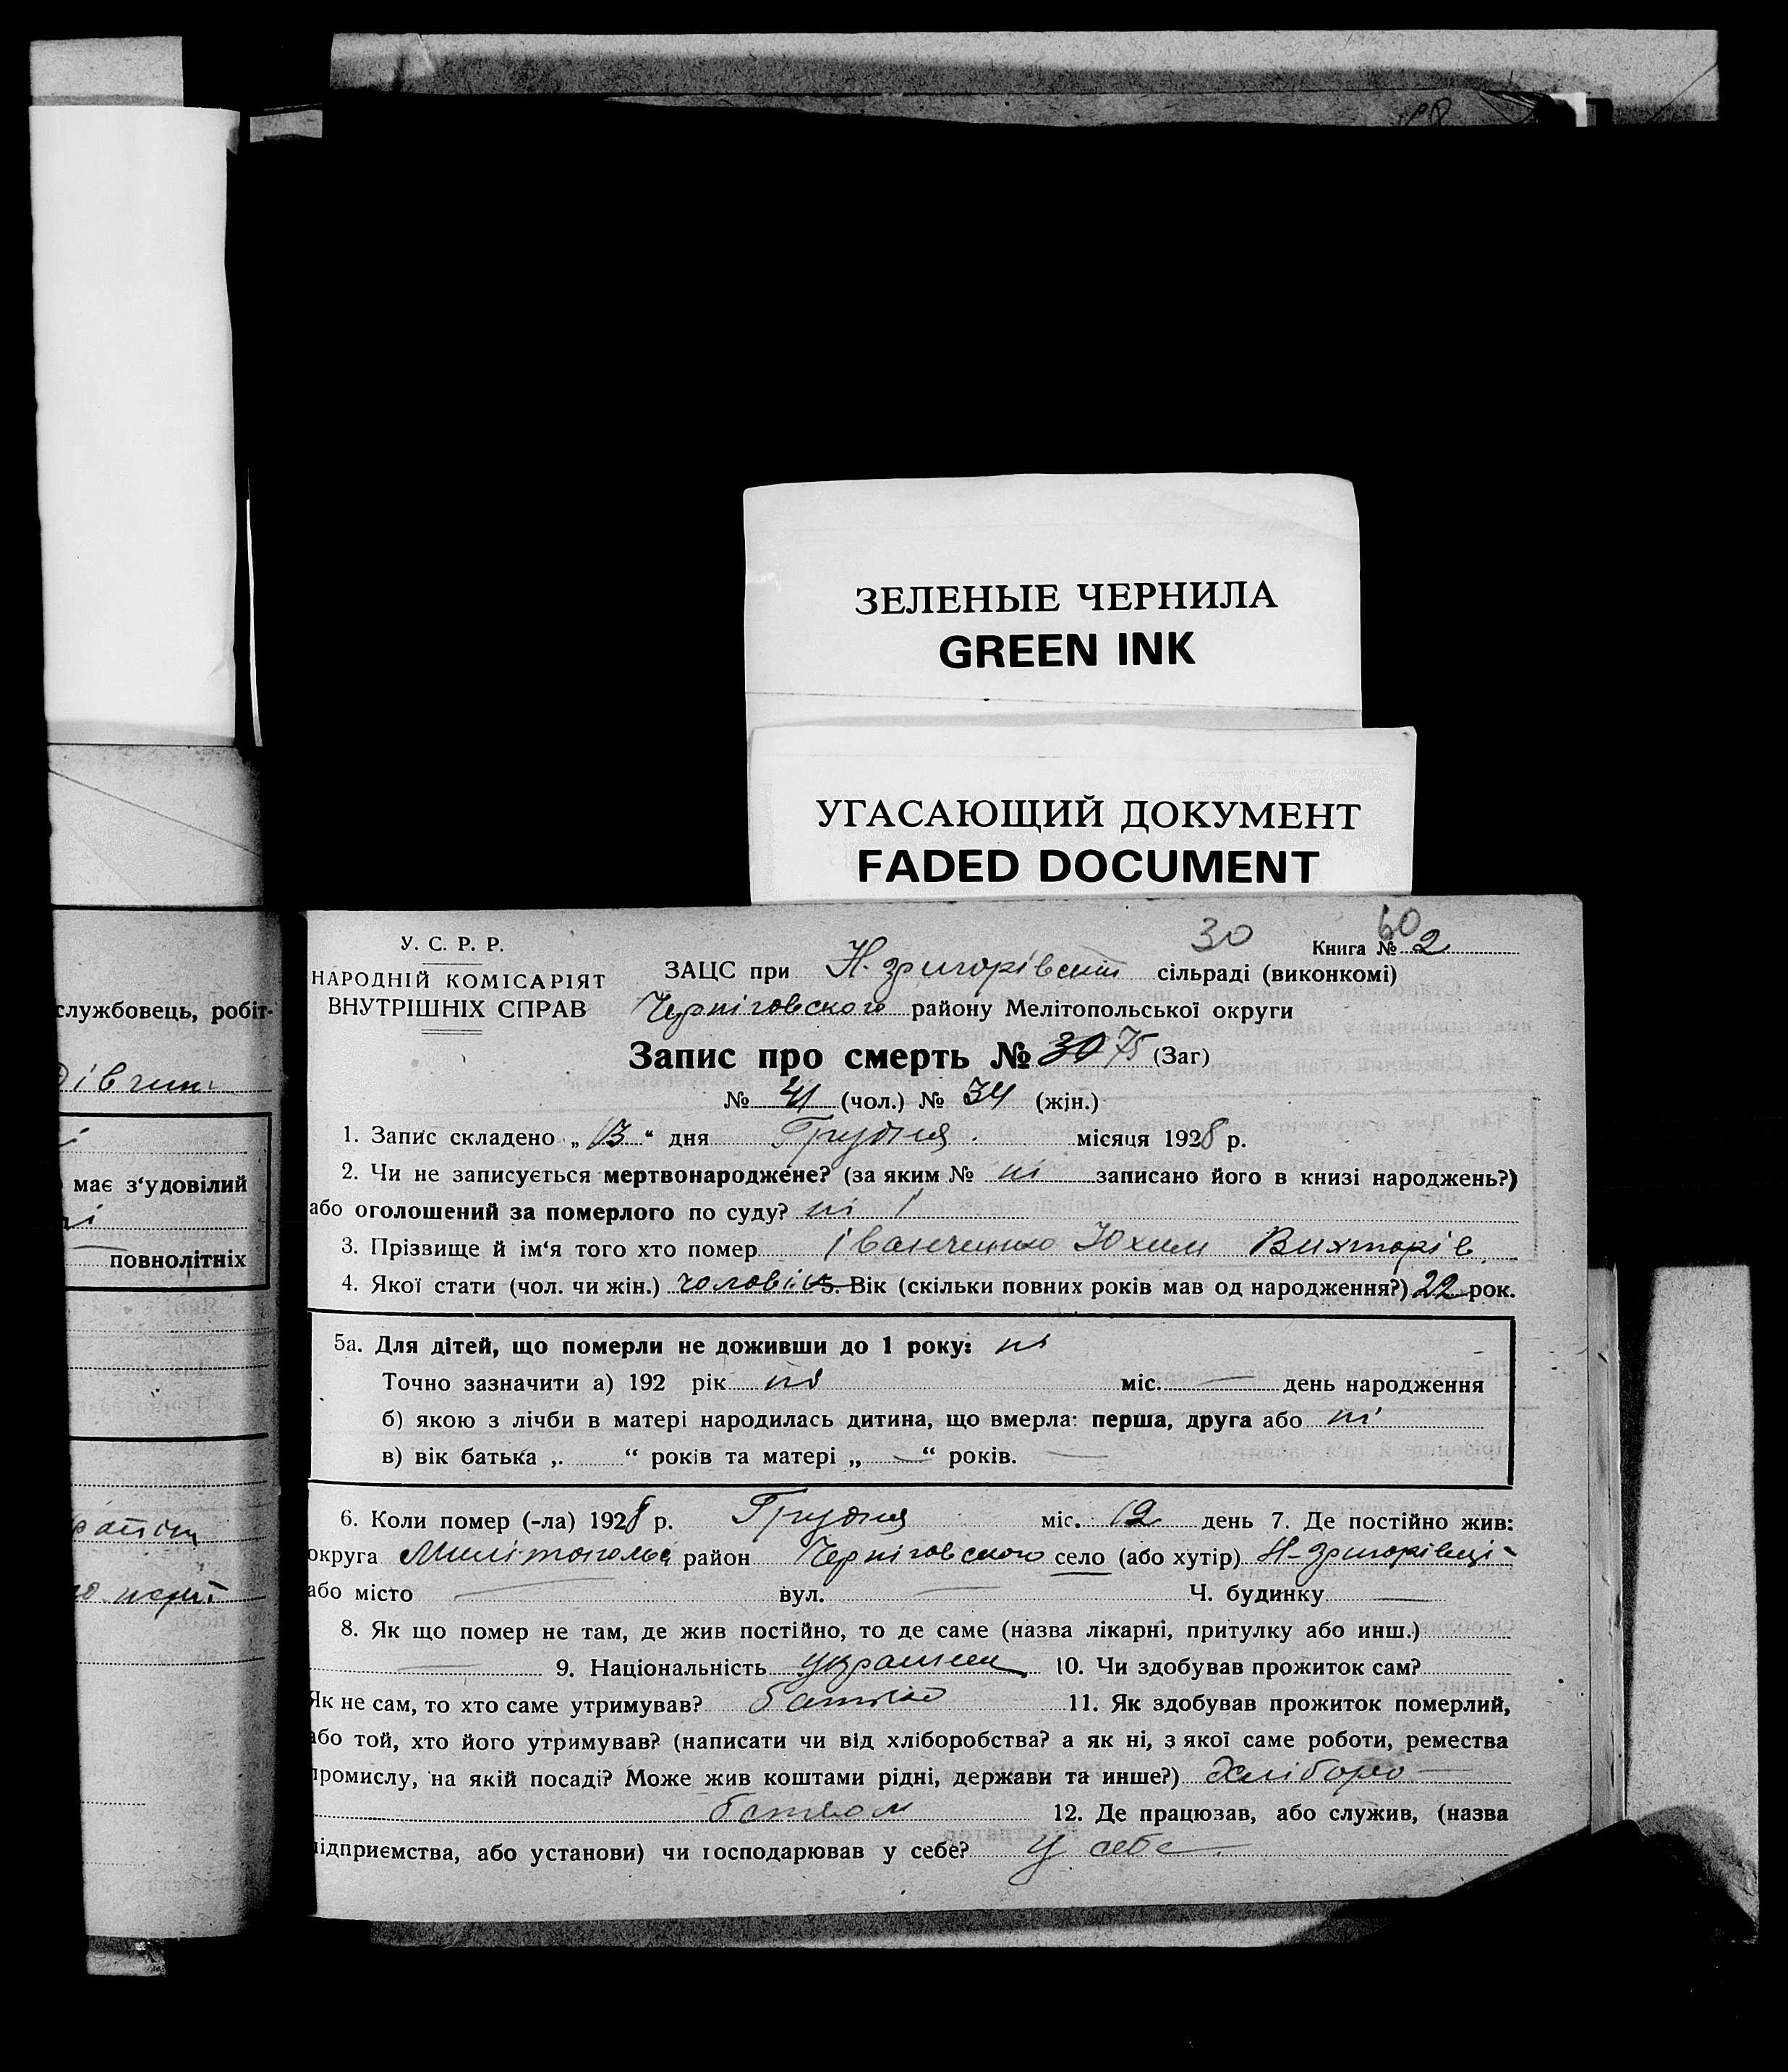 ЗЕЛЕНЫЕ ЧЕРНИЛА
GREEN INK
УГАСАЮЩИЙ ДОКУМЕНТ
FADED DOCUMENT
службовець, робіт-
має з‘удовілий
повнолітніх
30 60
У. С. Р. Р. Книга № 2
НАРОДНІЙ КОМІСАРІЯТ ЗАЦС при Н-григорівській сільраді (виконкомі)
ВНУТРІШНІХ СПРАВ Черніговского району Мелітопольської округи
Запис про смерть № 30 75 (Заг)
№ 41 (чол.) № 34 (жін.)
1. Запис складено „13“ дня Грудня місяця 1928 р.
2. Чи не записується мертвонароджене? (за яким № ні записано його в книзі народжень?)
або оголошений за померлого по суду? ні
3. Прізвище й ім‘я того хто помер Іванченко Юхим Вихторів
4. Якої стати (чол. чи жін.) чоловік 5. Вік (скільки повних років мав од народження?) 22 рок.
5а. Для дітей, що померли не доживши до 1 року: ні
Точно зазначити а) 192 рік ні міс. — день народження
б) якою з лічби в матері народилась дитина, що вмерла: перша, друга або ні
в) вік батька „ “ років та матері „ — “ років. —
6. Коли помер (-ла) 1928 р. Грудня міс. 12 день 7. Де постійно жив:
округа район Черніговского село (або хутір) Н-григорівці
або місто — вул. — Ч. будинку —
8. Як що помер не там, де жив постійно, то де саме (назва лікарні, притулку або инш.)
— 9. Національність 10. Чи здобував прожиток сам?
Як не сам, то хто саме утримував? батько 11. Як здобував прожиток померлий,
або той, хто його утримував? (написати чи від хліборобства? а як ні, з якої саме роботи, ремества
промислу, на якій посаді? Може жив коштами рідні, держави та инше?)
12. Де працюзав, або служив, (назва
підприємства, або установи) чи господарював у себе? У себе